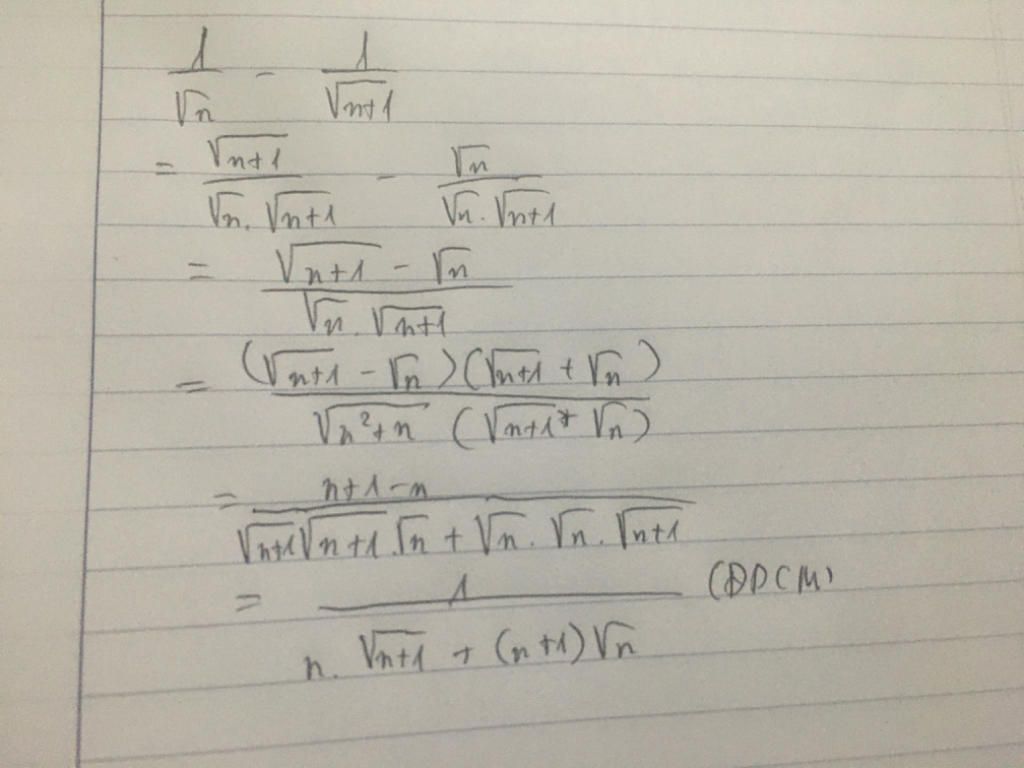 1/√n - 1/√(n+1)
= √(n+1)/(√n . √(n+1)) - √n/(√n . √(n+1))
= (√(n+1) - √n)/(√n . √(n+1))
= (√(n+1) - √n)(√(n+1) + √n)/(√(n²+n) (√(n+1) + √n))
= (n+1-n)/(√(n+1) √(n+1) . √n + √n . √n . √(n+1))
= 1/(n . √(n+1) + (n+1)√n) (ĐPCM)